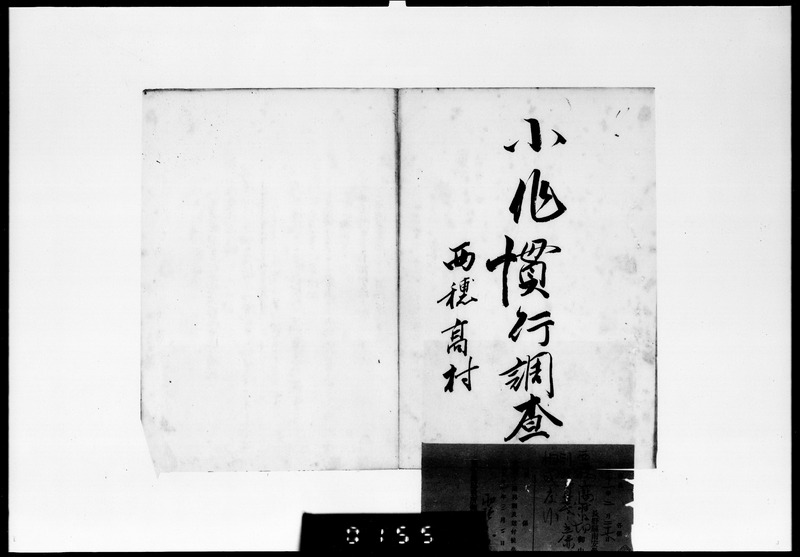 小作慣行調査
西穂高村
0155